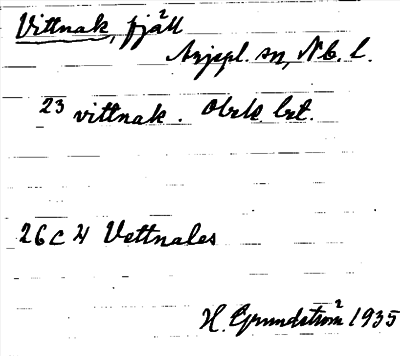 Vittnak, fjäll
Arjepl. sn, N.b. l.
23 vittnak. Obek. bet.
26 C 4 Vettnales
H. Grundström 1935